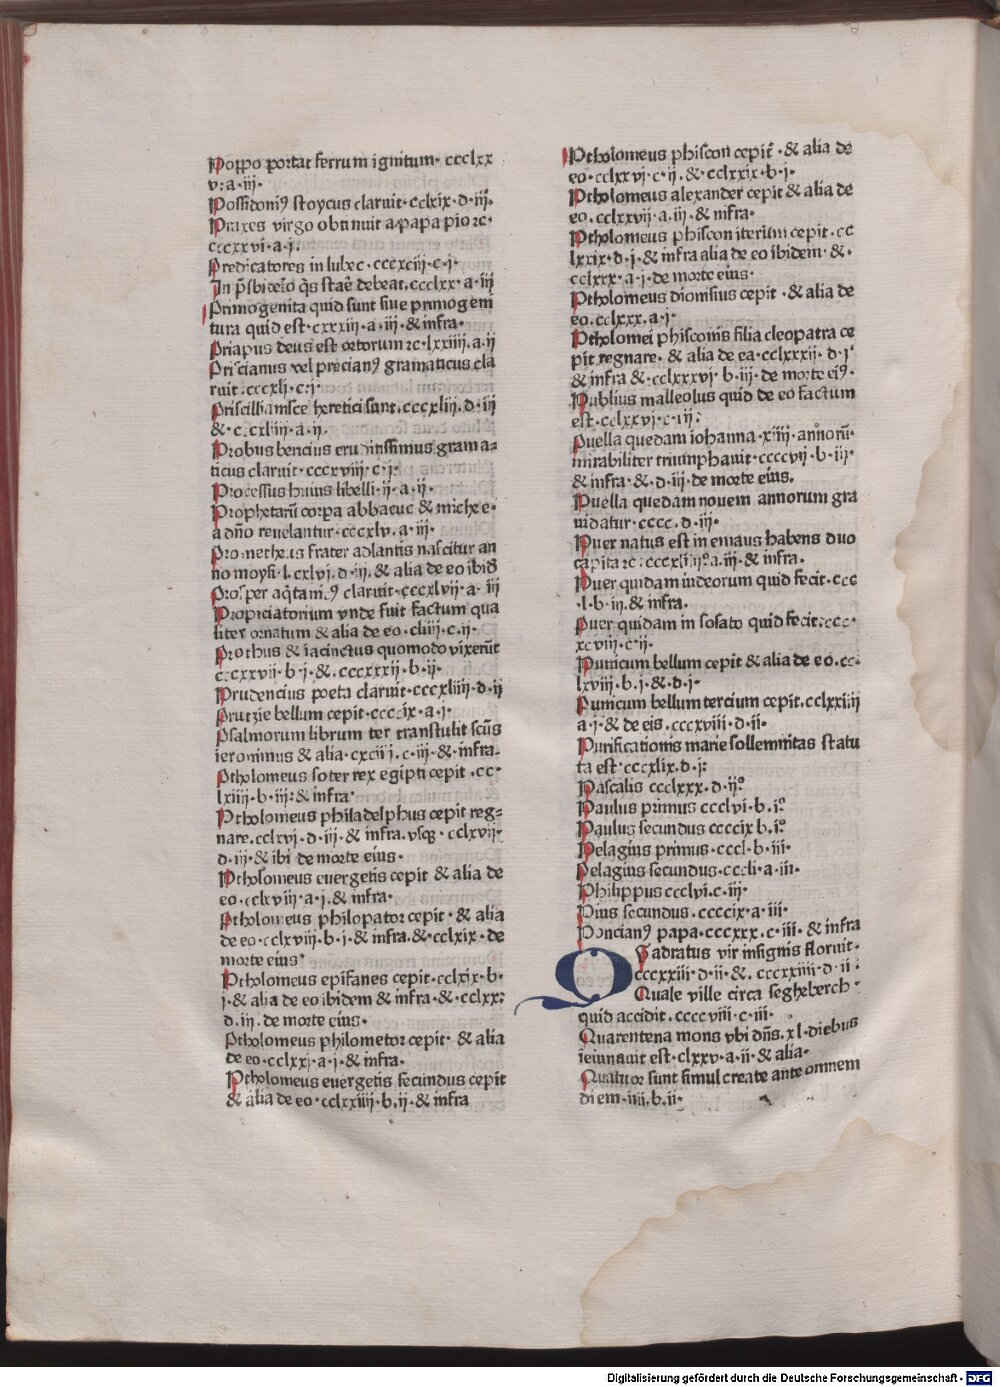 Poppo portat ferrum ignitum· ccclxx
v·a·iii·
Possidoniꝰ stoycus claruit·cclxix·d·iiiº
Praxes virgo obtinuit a papa pio ⁊c·
cccxxvi·a·j·
Predicatores in lubec·cccxciij·c·j·
In p̄sbit̄eīo q̄s staē debeat·ccclxx·a·iij
Primogenita quid sunt siue primogeni
tura quid est·cxxxiii·a·iii·&infra·
Priapus deus est ortorum ⁊c·lxxiiii·a·ij
Priscianus vel precianꝰ gramaticus cla
ruit·cccxlj·c·j·
Priscillianisce heretici sunt·cccxliij·d·iij
&·cccxliiij·a·ij·
Probus bencius eruditissimus grama-
ticus claruit·cccxviij·c·j·
Processus huius libelli·ij·a·ij·
Prophetarū corpa abbacuc & miche e-
a dn̄o reuelantur·cccxlv·a·iij·
Prometheus frater adlantis nascitur an
no moysi·l·cxlvj·d·iij·& alia de eo ibid̄
Prosper aq̄tanꝰ claruit·cccxlvij·a·iij
Propiciatorium vnde fuit factum qua
liter ornatum & alia de eo·cliij·c·ij·
Prothus & iacinctus quomodo vixerūt
cccxxvij·b·j·&·cccxxxij·b·ij·
Prudencius poeta claruit·cccxliiij·d·ij
Prutzie bellum cepit·ccccix·a·j·
Psalmorum librum ter transtulit scūs
ieronimus & alia·cxciij·c·iij·& infra·
Ptholomeus soter rex egipti cepit·cc·
lxiiij·b·iij:& infra·
Ptholomeus philadelphus cepit reg-
nare·cclxvj·d·iij·& infra·vsqꝫ·cclxvij·
d·iij·& ibi de morte eius·
Ptholomeus euergetis cepit & alia de
eo·cclxviij·a·j·& infra·
Ptholomeus philopator cepit·& alia
de eo·cclxviij·b·j·& infra·&·cclxix·de
morte eius·
Ptholomeus epifanes cepit·cclxix·b·
j·& alia de eo ibidem & infra·&·cclxx:
d·iij·de morte eius·
Ptholomeus philometor cepit·& alia
de eo·cclxxj·a·j·& infra·
Ptholomeus euergetis secundus cepit
& alia de eo·cclxxiiij·b·ij·& infra
Ptholomeus phiscon cepit·& alia de
eo·cclxxvj·c·ij·&·cclxxix·b·j·
Ptholomeus alexander cepit & alia de
eo·cclxxvij·a·iij·& infra·
Ptholomeus phiscon iterum cepit·cc
lxxix·d·j·& infra alia de eo ibidem·&·
cclxxx·a·j·de morte eius·
Ptholomeus dionisius cepit·& alia de
eo·cclxxx·a·j·
Ptholomei phisconis filia cleopatra ce
pit regnare·& alia de ea·cclxxxij·d·j·
& infra &·cclxxxvj·b·iij·de morte eiꝰ·
Publius malleolus quid de eo factum
est·cclxxvj·c·iij:
Puella quedam iohanna·xiiij·annorū·
mirabiliter triumphauit·ccccvij·b·iij·
& infra·&·d·iij·de morte eius·
Puella quedam nouem annorum gra
uidatur·cccc·d·iij·
Puer natus est in emaus habens duo
capita ⁊c·cccxliiijº·a·iij·& infra·
Puer quidam iudeorum quid fecit·ccc
·l·b·iij·& infra·
Puer quidam in sosato quid fecit·ccc·
xcviij·c·ij·
Punicum bellum cepit & alia de eo·cc·
lxviij·b·j·&·d·j·
Punicum bellum tercium cepit·cclxxiiij
a·j·& de eis·cccxviij·d·ij·
Purificationis marie sollemnitas statu
ta est·cccxlix·d·j:
Pascalis ccclxxx·d·ijº
Paulus primus ccclvj·b·jº
Paulus secundus ccccix b·jº
Pelagius primus·cccl·b·iij·
Pelagius secundus·cccli·a·iij·
Philippus ccclvj·c·iij·
Pius secundus·ccccix·a·iij·
Poncianꝰ papa·cccxxx·c·iij·& infra
Qadratus vir insignis floruit·
cccxxiij·d·ij·&·cccxxiiij·d·ij:
Quale ville circa segheberch·
quid accidit·ccccviij·c·iij·
Quarentena mons vbi dn̄s·xl·diebus
ieiunauit est·clxxv·a·ij·& alia·
Quatuor sunt simul create ante omnem
diem·iiij·b·ij·
Digitalisierung gefördert durch die Deutsche Forschungsgemeinschaft - DFG